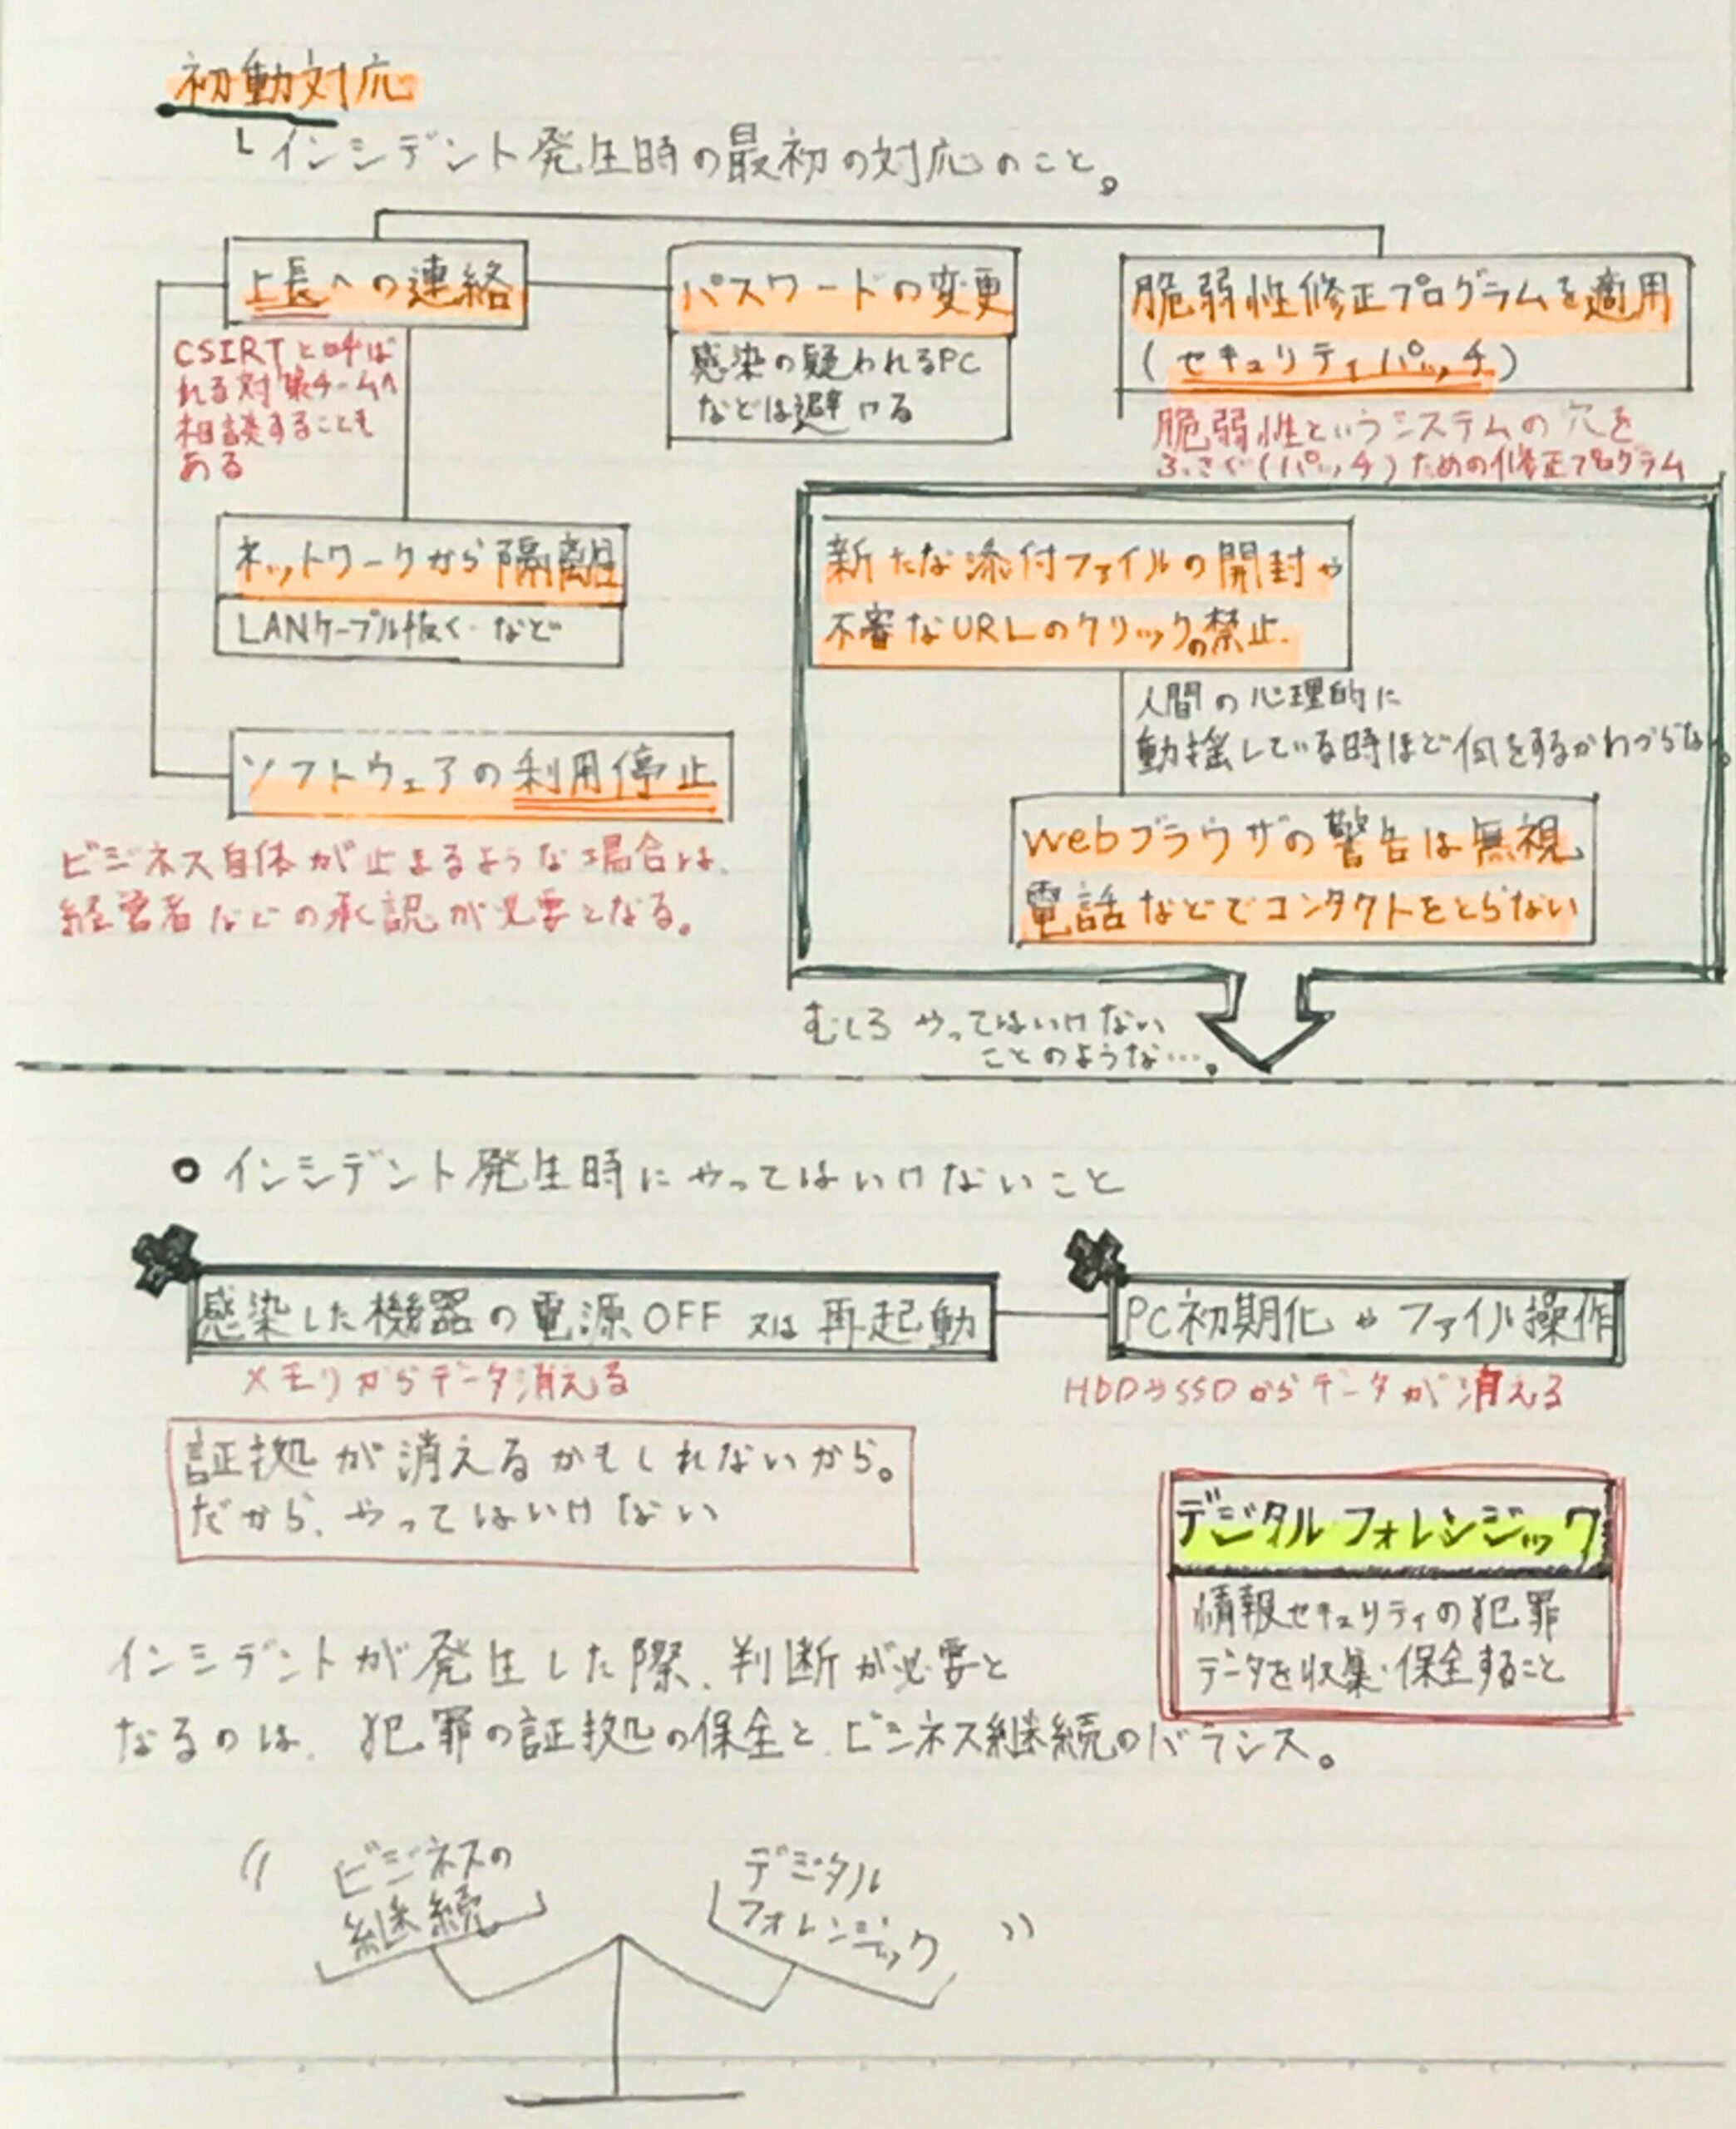 初動対応
インシデント発生時の最初の対応のこと。
上長への連絡
CSIRTと呼ば
れる対策チームへ
相談することも
ある
パスワードの変更
感染の疑われるPC
などは避ける
脆弱性修正プログラムを適用
(セキュリティパッチ)
脆弱性というシステムの穴を
ふさぐ(パッチ)ための修正プログラム
ネットワークから隔離
LANケーブル抜く・など
ソフトウェアの利用停止
ビジネス自体が止まるような場合は、
経営者などの承認が必要となる。
新たな添付ファイルの開封や
不審なURLのクリックの禁止.
人間の心理的に
動揺している時ほど何をするかわづらな。
webブラウザの警告は無視
電話などでコンタクトをとらない
むしろ やってはいけない
ことのような…。
インシデント発生時にやってはいけないこと
感染した機器の電源OFF 又は 再起動
メモリからデータ消える
PC初期化 や ファイル操作
HDDやSSDからデータが消える
証拠が消えるかもしれないから。
だから、やってはいけない
デジタルフォレンジック
情報セキュリティの犯罪
データを収集・保全すること
インシデントが発生した際、判断が必要と
なるのは、犯罪の証拠の保全と、ビジネス継続のバランス。
ビジネスの
継続
デジタル
フォレンジック